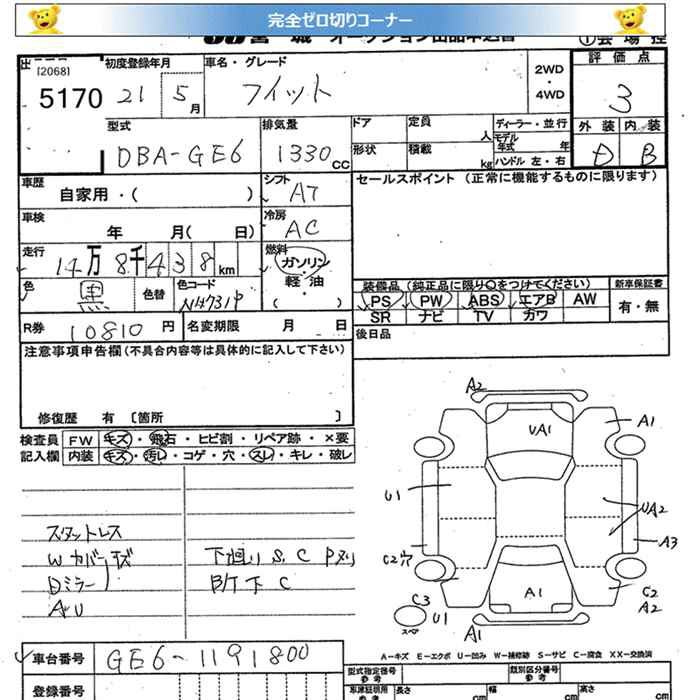 完全ゼロ切りコーナー
出 [2068] 初度登録年月 車名・グレード 2WD・4WD 評価点
5170 21 5月 フィット 3
型式 排気量 ドア 定員 人 ディーラー・並行 モデル年式 年 外装 内装
DBA-GE6 1330cc 形状 積載 kg ハンドル 左・右 D B
車歴 自家用・( ) シフト AT セールスポイント (正常に機能するものに限ります)
車検 年 月( 日) 冷房 AC
走行 14万8千438km 燃料 ガソリン・軽油・( )
色 黒 色替 色コード 装備品 (純正品に限り○をつけてください) 新車保証書
PS PW ABS エアB AW 有・無
SR ナビ TV カワ
R券 10810円 名変期限 月 日 後日品
注意事項申告欄(不具合内容等は具体的に記入して下さい)
修復歴 有 [箇所 ]
検査員 FW キズ・飛石・ヒビ割・リペア跡・×要
記入欄 内装 キズ・汚レ・コゲ・穴・スレ・キレ・破レ
スタットレス
Wカバーキズ 下廻りS、C Pヌリ
Dミラー B/ド下 C
AU
A2
UA1 A1
U1 UA2
A3
C2穴
C2
A2
A1
C3 U1
スペア A1
A-キズ E-エクボ U-凹み W-補修跡 S-サビ C-腐食 XX-交換済
車台番号 GE6-1191800
型式指定番号 参考 類別区分番号 参考
登録番号 車庫証明用 参考 長さ cm 幅 cm 高さ cm